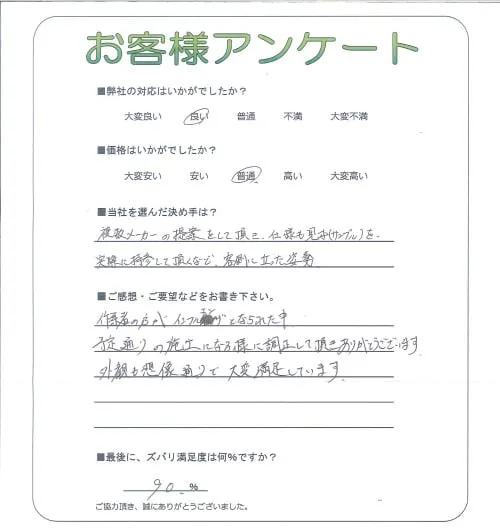 お客様アンケート
■弊社の対応はいかがでしたか？
大変良い 良い 普通 不満 大変不満
■価格はいかがでしたか？
大変安い 安い 普通 高い 大変高い
■当社を選んだ決め手は？
複数メーカーの提案をして頂き、仕様も見本(サンプル)を、
実際に持参して頂くなど、客側に立った姿勢
■ご感想・ご要望などをお書き下さい。
作業者の方が インフル となられた中
予定通りの施工になる様に調正して頂きありがとうございます
外観も想像通りで大変満足しています
■最後に、ズバリ満足度は何%ですか？
90 %
ご協力頂き、誠にありがとうございました。